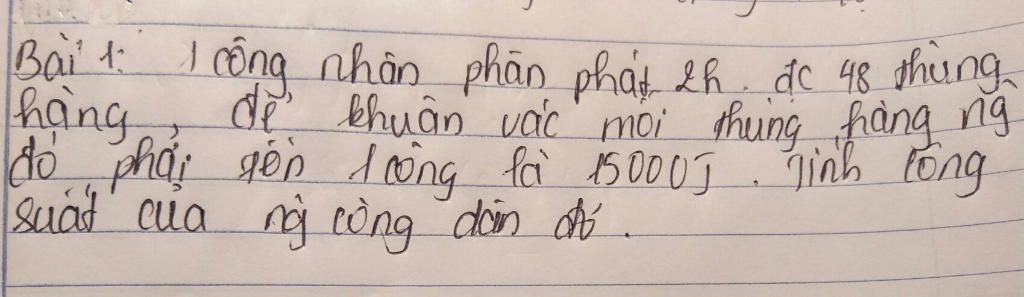 Bài 1: 1 công nhân phân phát 2h đc 48 thùng
hàng, để khuân vác mỗi thùng hàng ng
đó phải tốn 1 công là 15000J. Tính công
suất của ng công dân đó.